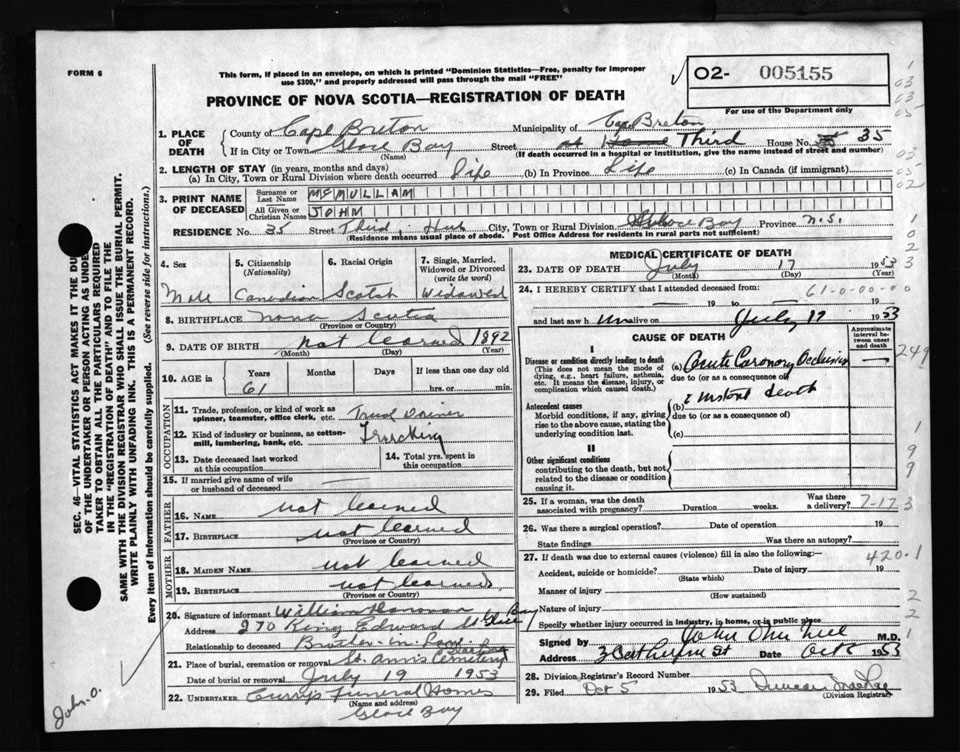 FORM 6
This form, if placed in an envelope, on which is printed "Dominion Statistics—Free, penalty for improper
use $300," and properly addressed will pass through the mail "FREE"
O2- 005155
For use of the Department only
PROVINCE OF NOVA SCOTIA—REGISTRATION OF DEATH
1. PLACE OF DEATH
County of Cape Breton Municipality of Cape Breton
If in City or Town Glace Bay Street at Home Third House No. 35
(Name) (If death occurred in a hospital or institution, give the name instead of street and number)
2. LENGTH OF STAY (in years, months and days)
(a) In City, Town or Rural Division where death occurred Life (b) In Province Life (c) In Canada (if immigrant)
3. PRINT NAME OF DECEASED
Surname or Last Name McMULLAM
All Given or Christian Names JOHM
RESIDENCE No. 35 Street Third, Hub City, Town or Rural Division Glace Bay Province N.S.
(Residence means usual place of abode. Post Office Address for residents in rural parts not sufficient)
4. Sex
Male
5. Citizenship (Nationality)
Canadian
6. Racial Origin
Scotch
7. Single, Married, Widowed or Divorced (write the word)
Widowed
8. BIRTHPLACE Nova Scotia
(Province or Country)
9. DATE OF BIRTH not learned 1892
(Month) (Day) (Year)
10. AGE in Years Months Days If less than one day old
61 hrs. or min.
OCCUPATION
11. Trade, profession, or kind of work as spinner, teamster, office clerk, etc. Truck Driver
12. Kind of industry or business, as cotton-mill, lumbering, bank, etc. Trucking
13. Date deceased last worked at this occupation
14. Total yrs. spent in this occupation
15. If married give name of wife or husband of deceased
FATHER
16. NAME not learned
17. BIRTHPLACE not learned
(Province or Country)
MOTHER
18. MAIDEN NAME not learned
19. BIRTHPLACE not learned
(Province or Country)
20. Signature of informant William Donovan
Address 270 King Edward St Glace Bay
Relationship to deceased Brother in Law
21. Place of burial, cremation or removal St. Ann's Cemetery
Date of burial or removal July 19 1953
22. UNDERTAKER Curry's Funeral Homes
(Name and address)
Glace Bay
MEDICAL CERTIFICATE OF DEATH
23. DATE OF DEATH July 17 1953
(Month) (Day) (Year)
24. I HEREBY CERTIFY that I attended deceased from: 61-0-00-00
19 to 19
and last saw h im alive on July 17 1953
CAUSE OF DEATH
Approximate interval between onset and death
Disease or condition directly leading to death
(This does not mean the mode of dying, e.g., heart failure, asthenia, etc. It means the disease, injury, or complication which caused death.)
(a) Acute Coronary Occlusion
due to (or as a consequence of)
Antecedent causes
Morbid conditions, if any, giving rise to the above cause, stating the underlying condition last.
(b) instant death
due to (or as a consequence of)
(c)
II
Other significant conditions
contributing to the death, but not related to the disease or condition causing it.
25. If a woman, was the death associated with pregnancy? Duration weeks. Was there a delivery? 7-17
26. Was there a surgical operation? Date of operation 19
State findings Was there an autopsy?
27. If death was due to external causes (violence) fill in also the following:— 420.1
Accident, suicide or homicide? Date of injury 19
(State which)
Manner of injury
(How sustained)
Nature of injury
Specify whether injury occurred in industry, in home, or in public place
Signed by M.D.
Address 3 Catherine St Date Oct 5 1953
28. Division Registrar's Record Number
29. Filed Oct 5 1953 Duncan
(Division Registrar)
SEC. 46—VITAL STATISTICS ACT MAKES IT THE DUTY
OF THE UNDERTAKER OR PERSON ACTING AS UNDER-
TAKER TO OBTAIN ALL THE PARTICULARS REQUIRED
IN THE "REGISTRATION OF DEATH" AND TO FILE THE
SAME WITH THE DIVISION REGISTRAR WHO SHALL ISSUE THE BURIAL PERMIT.
WRITE PLAINLY WITH UNFADING INK. THIS IS A PERMANENT RECORD.
Every item of Information should be carefully supplied. (See reverse side for instructions.)
John. O.
249